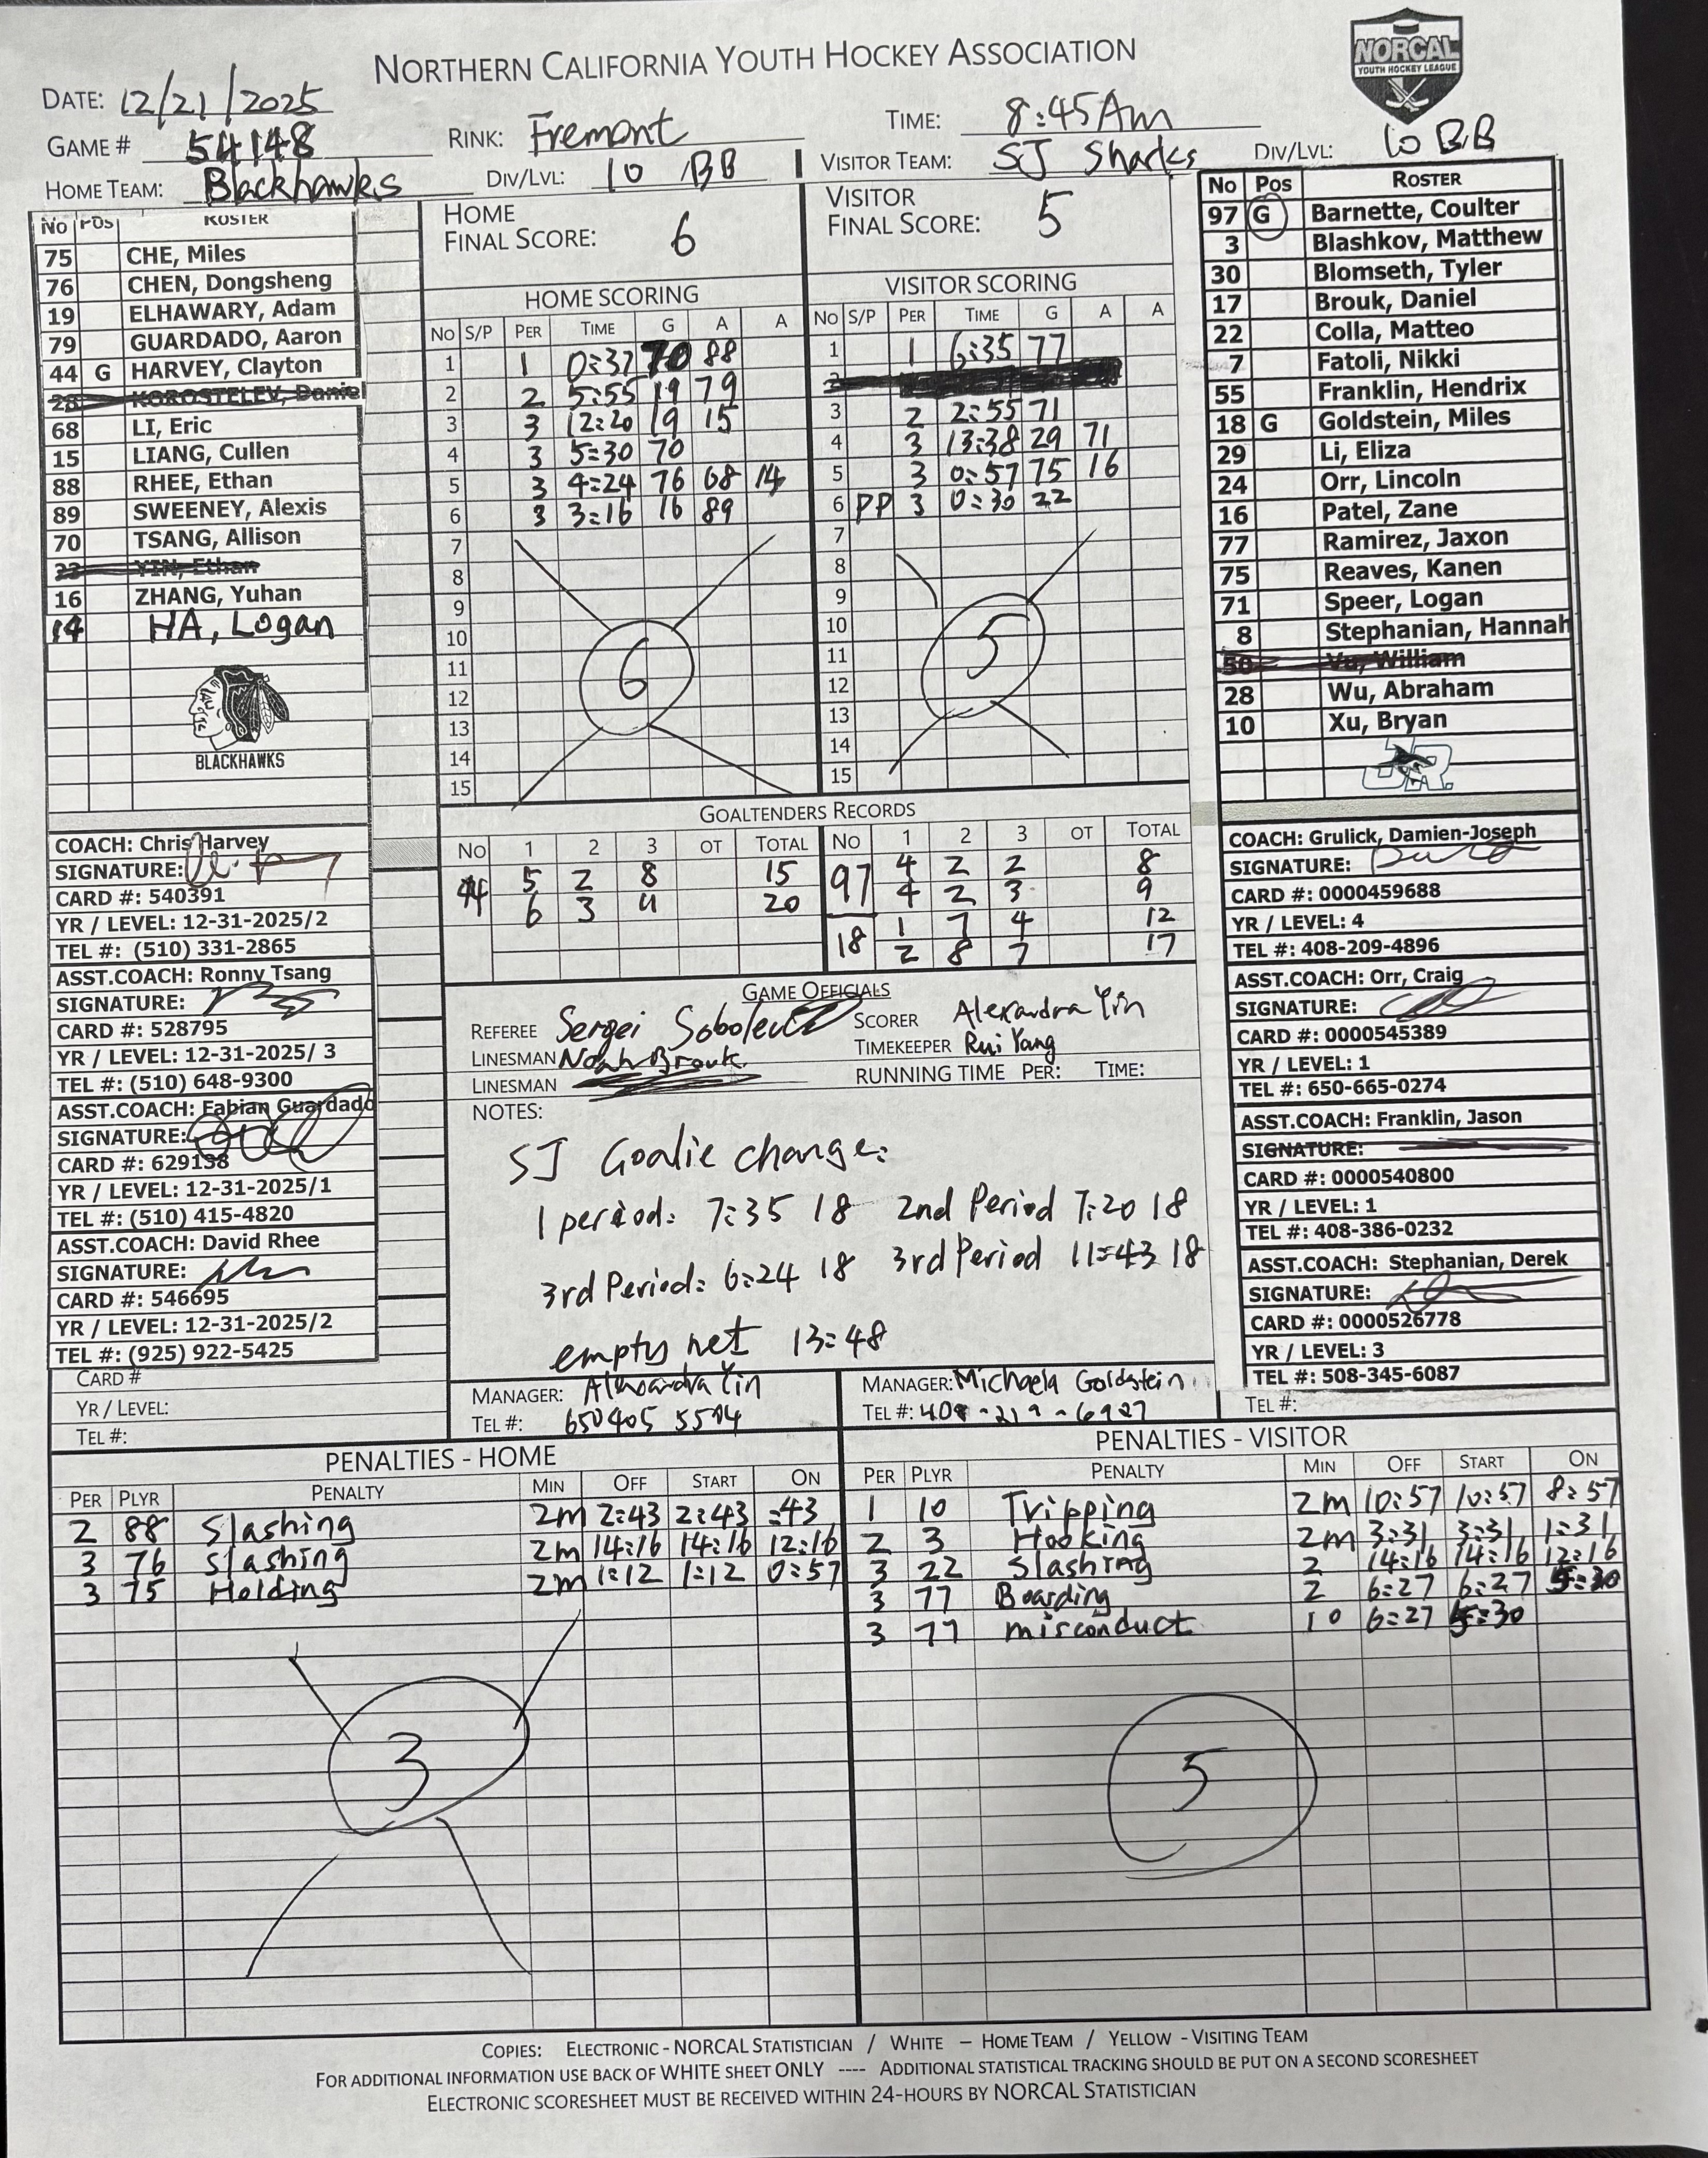 NORTHERN CALIFORNIA YOUTH HOCKEY ASSOCIATION
NORCAL
YOUTH HOCKEY LEAGUE
DATE: 12/21/2025
GAME # 54148
RINK: Fremont
TIME: 8:45Am
HOME TEAM: Blackhawks
DIV/LVL: 10 BB
VISITOR TEAM: SJ Sharks
DIV/LVL: 10 BB
No POS ROSTER
75 CHE, Miles
76 CHEN, Dongsheng
19 ELHAWARY, Adam
79 GUARDADO, Aaron
44 G HARVEY, Clayton
28 KOROSTELEV, Daniel
68 LI, Eric
15 LIANG, Cullen
88 RHEE, Ethan
89 SWEENEY, Alexis
70 TSANG, Allison
23 YIN, Ethan
16 ZHANG, Yuhan
14 HA, Logan
BLACKHAWKS
HOME
FINAL SCORE: 6
HOME SCORING
No S/P PER TIME G A A
1 1 0:37 70 88
2 2 5:55 19 79
3 3 12:20 19 15
4 3 5:30 70
5 3 4:24 76 68 14
6 3 3:16 16 89
7
8
9
10
11
12
13
14
15
6
VISITOR
FINAL SCORE: 5
VISITOR SCORING
No S/P PER TIME G A A
1 1 6:35 77
3 2 2:55 71
4 3 13:38 29 71
5 3 0:57 75 16
6 PP 3 0:30 22
7
8
9
10
11
12
13
14
15
5
No Pos ROSTER
97 G Barnette, Coulter
3 Blashkov, Matthew
30 Blomseth, Tyler
17 Brouk, Daniel
22 Colla, Matteo
7 Fatoli, Nikki
55 Franklin, Hendrix
18 G Goldstein, Miles
29 Li, Eliza
24 Orr, Lincoln
16 Patel, Zane
77 Ramirez, Jaxon
75 Reaves, Kanen
71 Speer, Logan
8 Stephanian, Hannah
50 Vu, William
28 Wu, Abraham
10 Xu, Bryan
JR.
GOALTENDERS RECORDS
No 1 2 3 OT TOTAL No 1 2 3 OT TOTAL
44 5 2 8 15 97 4 2 2 8
6 3 11 20 4 2 3 9
18 1 7 4 12
2 8 7 17
COACH: Chris Harvey
SIGNATURE:
CARD #: 540391
YR / LEVEL: 12-31-2025/2
TEL #: (510) 331-2865
ASST.COACH: Ronny Tsang
SIGNATURE:
CARD #: 528795
YR / LEVEL: 12-31-2025/ 3
TEL #: (510) 648-9300
ASST.COACH: Fabian Guardado
SIGNATURE:
CARD #: 629138
YR / LEVEL: 12-31-2025/1
TEL #: (510) 415-4820
ASST.COACH: David Rhee
SIGNATURE:
CARD #: 546695
YR / LEVEL: 12-31-2025/2
TEL #: (925) 922-5425
CARD #
YR / LEVEL:
TEL #:
GAME OFFICIALS
REFEREE Sergei
SCORER Alexandra Yin
LINESMAN Noah Brouk
TIMEKEEPER Rui Yang
LINESMAN
RUNNING TIME PER: TIME:
NOTES:
SJ Goalie change:
1 period: 7:35 18 2nd Period 7:20 18
3rd Period: 6:24 18 3rd Period 11:43 18
empty net 13:48
MANAGER: Alexandra Yin
TEL #: 650 405 5504
MANAGER: Michaela Goldstein
TEL #: 408-219-6927
COACH: Grulick, Damien-Joseph
SIGNATURE:
CARD #: 0000459688
YR / LEVEL: 4
TEL #: 408-209-4896
ASST.COACH: Orr, Craig
SIGNATURE:
CARD #: 0000545389
YR / LEVEL: 1
TEL #: 650-665-0274
ASST.COACH: Franklin, Jason
SIGNATURE:
CARD #: 0000540800
YR / LEVEL: 1
TEL #: 408-386-0232
ASST.COACH: Stephanian, Derek
SIGNATURE:
CARD #: 0000526778
YR / LEVEL: 3
TEL #: 508-345-6087
TEL #:
PENALTIES - HOME
PER PLYR PENALTY MIN OFF START ON
2 88 Slashing 2m 2:43 2:43 :43
3 76 Slashing 2m 14:16 14:16 12:16
3 75 Holding 2m 1:12 1:12 0:57
3
PENALTIES - VISITOR
PER PLYR PENALTY MIN OFF START ON
1 10 Tripping 2m 10:57 10:57 8:57
2 3 Hooking 2m 3:31 3:31 1:31
3 22 Slashing 2 14:16 14:16 12:16
3 77 Boarding 2 6:27 6:27 5:30
3 77 misconduct 10 6:27 5:30
5
COPIES: ELECTRONIC - NORCAL STATISTICIAN / WHITE – HOME TEAM / YELLOW - VISITING TEAM
FOR ADDITIONAL INFORMATION USE BACK OF WHITE SHEET ONLY ---- ADDITIONAL STATISTICAL TRACKING SHOULD BE PUT ON A SECOND SCORESHEET
ELECTRONIC SCORESHEET MUST BE RECEIVED WITHIN 24-HOURS BY NORCAL STATISTICIAN